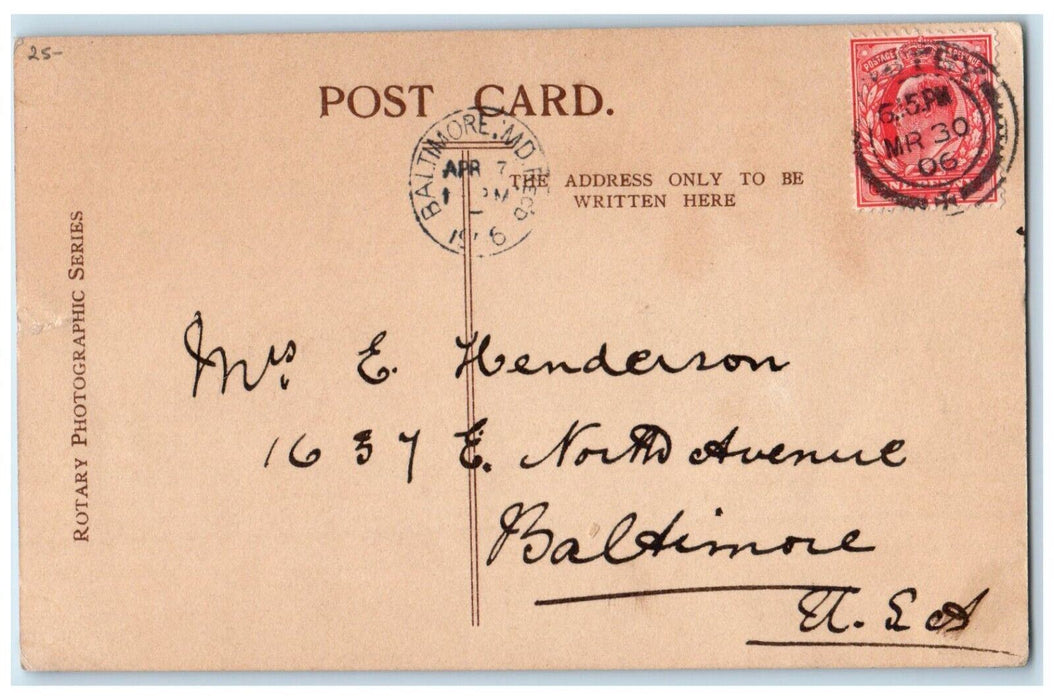 25-
POST CARD.
THE ADDRESS ONLY TO BE
WRITTEN HERE
ROTARY PHOTOGRAPHIC SERIES
BALTIMORE, MD. REC'D
APR 7
PM
POSTAGE
6.15 PM
MR 30
06
Mrs. E. Henderson
1637 E. North Avenue
Baltimore
U.S.A